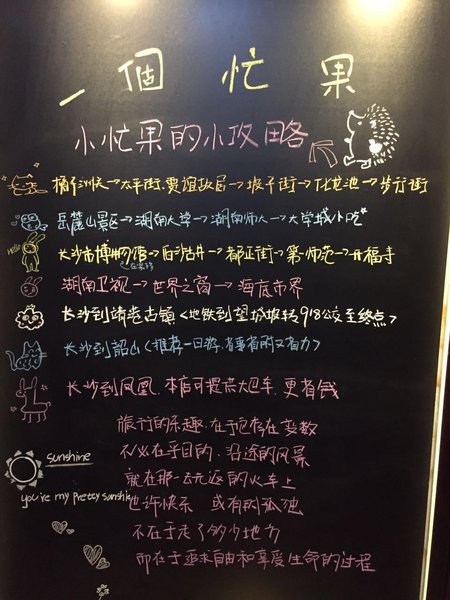 一個忙果
小忙果的小攻略
橘子洲头→太平街.贾谊故居→坡子街→化龙池→步行街
岳麓山景区→湖南大学→湖南师大→大学城小吃
Hello
长沙市博物馆→白沙古井→都正街→第一师范→开福寺
湖南卫视→世界之窗→海底世界
长沙到靖港古镇<地铁到望城坡转918公交至终点>
长沙到韶山(推荐一日游.省事省时又省力)
长沙到凤凰.本店可提点大巴车.更省钱
旅行的乐趣.在于它存在变数
不必在乎目的.沿途的风景
就在那一去无返的火车上
也许快乐 或有时孤独
不在于走了多少地方
而在于追求自由和享受生命的过程
sunshine
you're my pretty sunshine